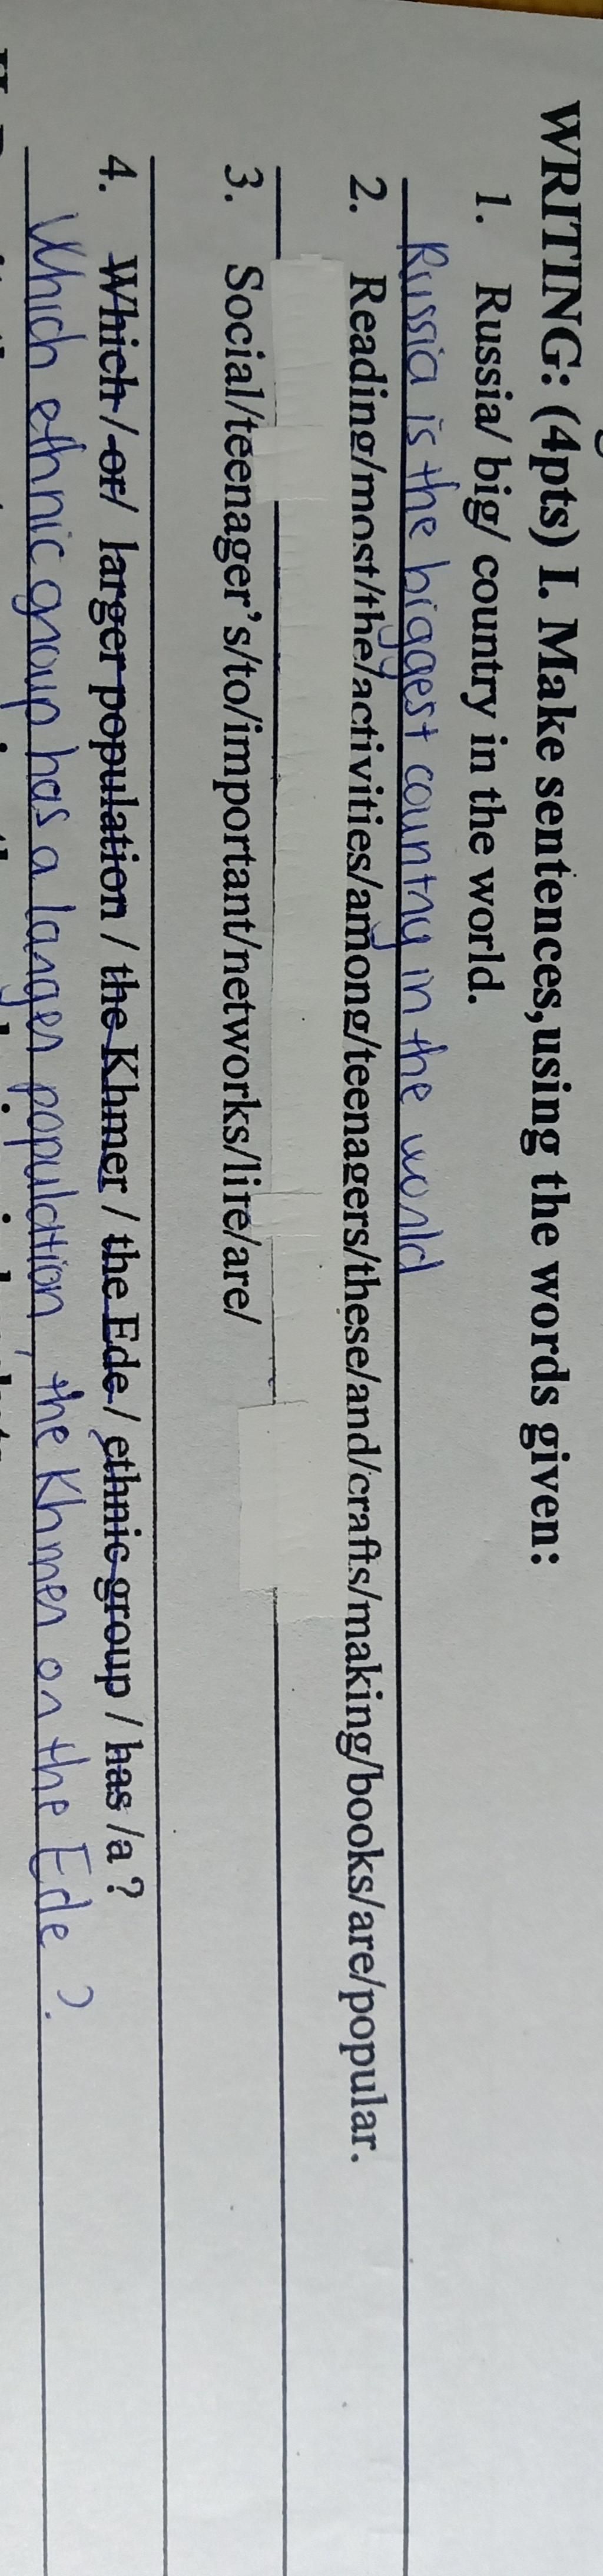 WRITING: (4pts) I. Make sentences,using the words given:
1. Russia/ big/ country in the world.
Russia is the biggest country in the world
2. Reading/most/the/activities/among/teenagers/these/and/crafts/making/books/are/popular.
3. Social/teenager's/to/important/networks/life/are/
4. Which / or/ larger population / the Khmer / the Ede / ethnic group / has /a ?
Which ethnic group has a larger population, the Khmer or the Ede ?